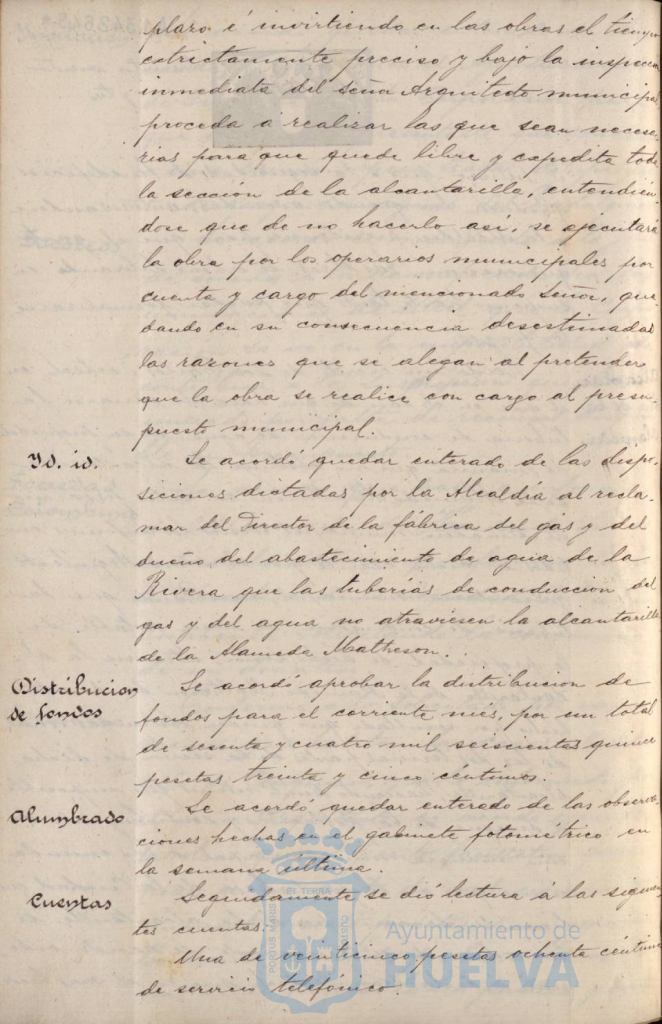 plazo é invirtiendo en las obras el tiempo
estrictamente preciso y bajo la inspección
inmediata del Señor Arquitecto municipal
proceda á realizar las que sean necesa-
rias para que quede libre y expedita toda
la sección de la alcantarilla, entendién-
dose que de no hacerlo así, se ejecutará
la obra por los operarios municipales por
cuenta y cargo del mencionado Señor, que-
dando en su consecuencia desestimadas
las razones que se alegan al pretender
que la obra se realice con cargo al presu-
puesto municipal.
Yd. id.
Se acordó quedar enterado de las dispo-
siciones dictadas por la Alcaldía al recla-
mar del Director de la fábrica del gas y del
dueño del abastecimiento de agua de la
Rivera que las tuberías de conduccion del
gas y del agua no atraviesen la alcantarilla
de la Alameda Matheson.
Distribucion
de fondos
Se acordó aprobar la distribucion de
fondos para el corriente més, por un total
de sesenta y cuatro mil seiscientas quince
pesetas treinta y cinco céntimos.
Alumbrado
Se acordó quedar enterado de las observa-
ciones hechas en el gabinete fotométrico en
la semana última.
Cuentas
Seguidamente se dió lectura á las siguien-
tes cuentas:
Una de veinticinco pesetas ochenta céntimos
de servicio telefónico.
Ayuntamiento de
HUELVA
PORTUS MARIS
ET TERRÆ
CUSTODIA